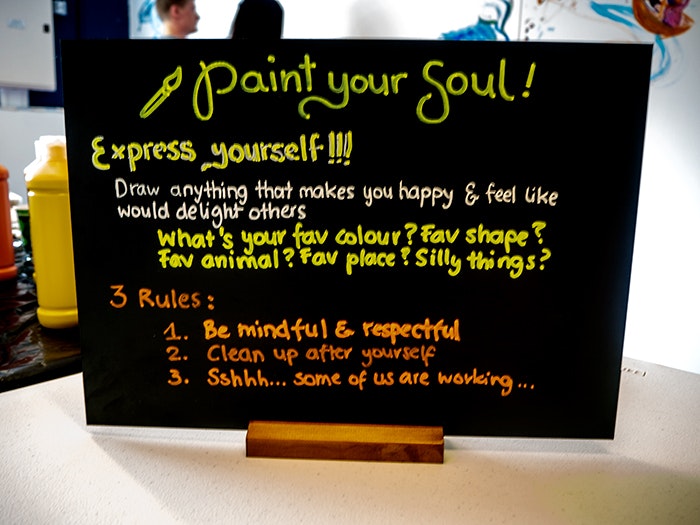 Paint your Soul!
Express yourself!!!
Draw anything that makes you happy & feel like
would delight others
What's your fav colour? Fav shape?
Fav animal? Fav place? Silly things?
3 Rules:
1. Be mindful & respectful
2. Clean up after yourself
3. Sshhh... some of us are working...